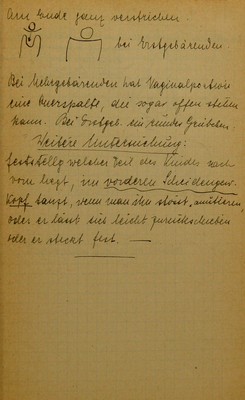 Am Ende ganz verstrichen.
bei Erstgebärenden.
Bei Mehrgebärenden hat Vaginalportion
eine Querspalte, die sogar offen stehen
kann. Bei Erstgeb. ein rundes Grübchen.
Weitere Untersuchung:
feststellg welcher Teil des Kindes nach
vorn liegt, im vorderen Scheidengew.
Kopf tanzt, wenn man ihn stösst,
oder er lässt sich leicht zurückschieben
oder er steckt fest. —